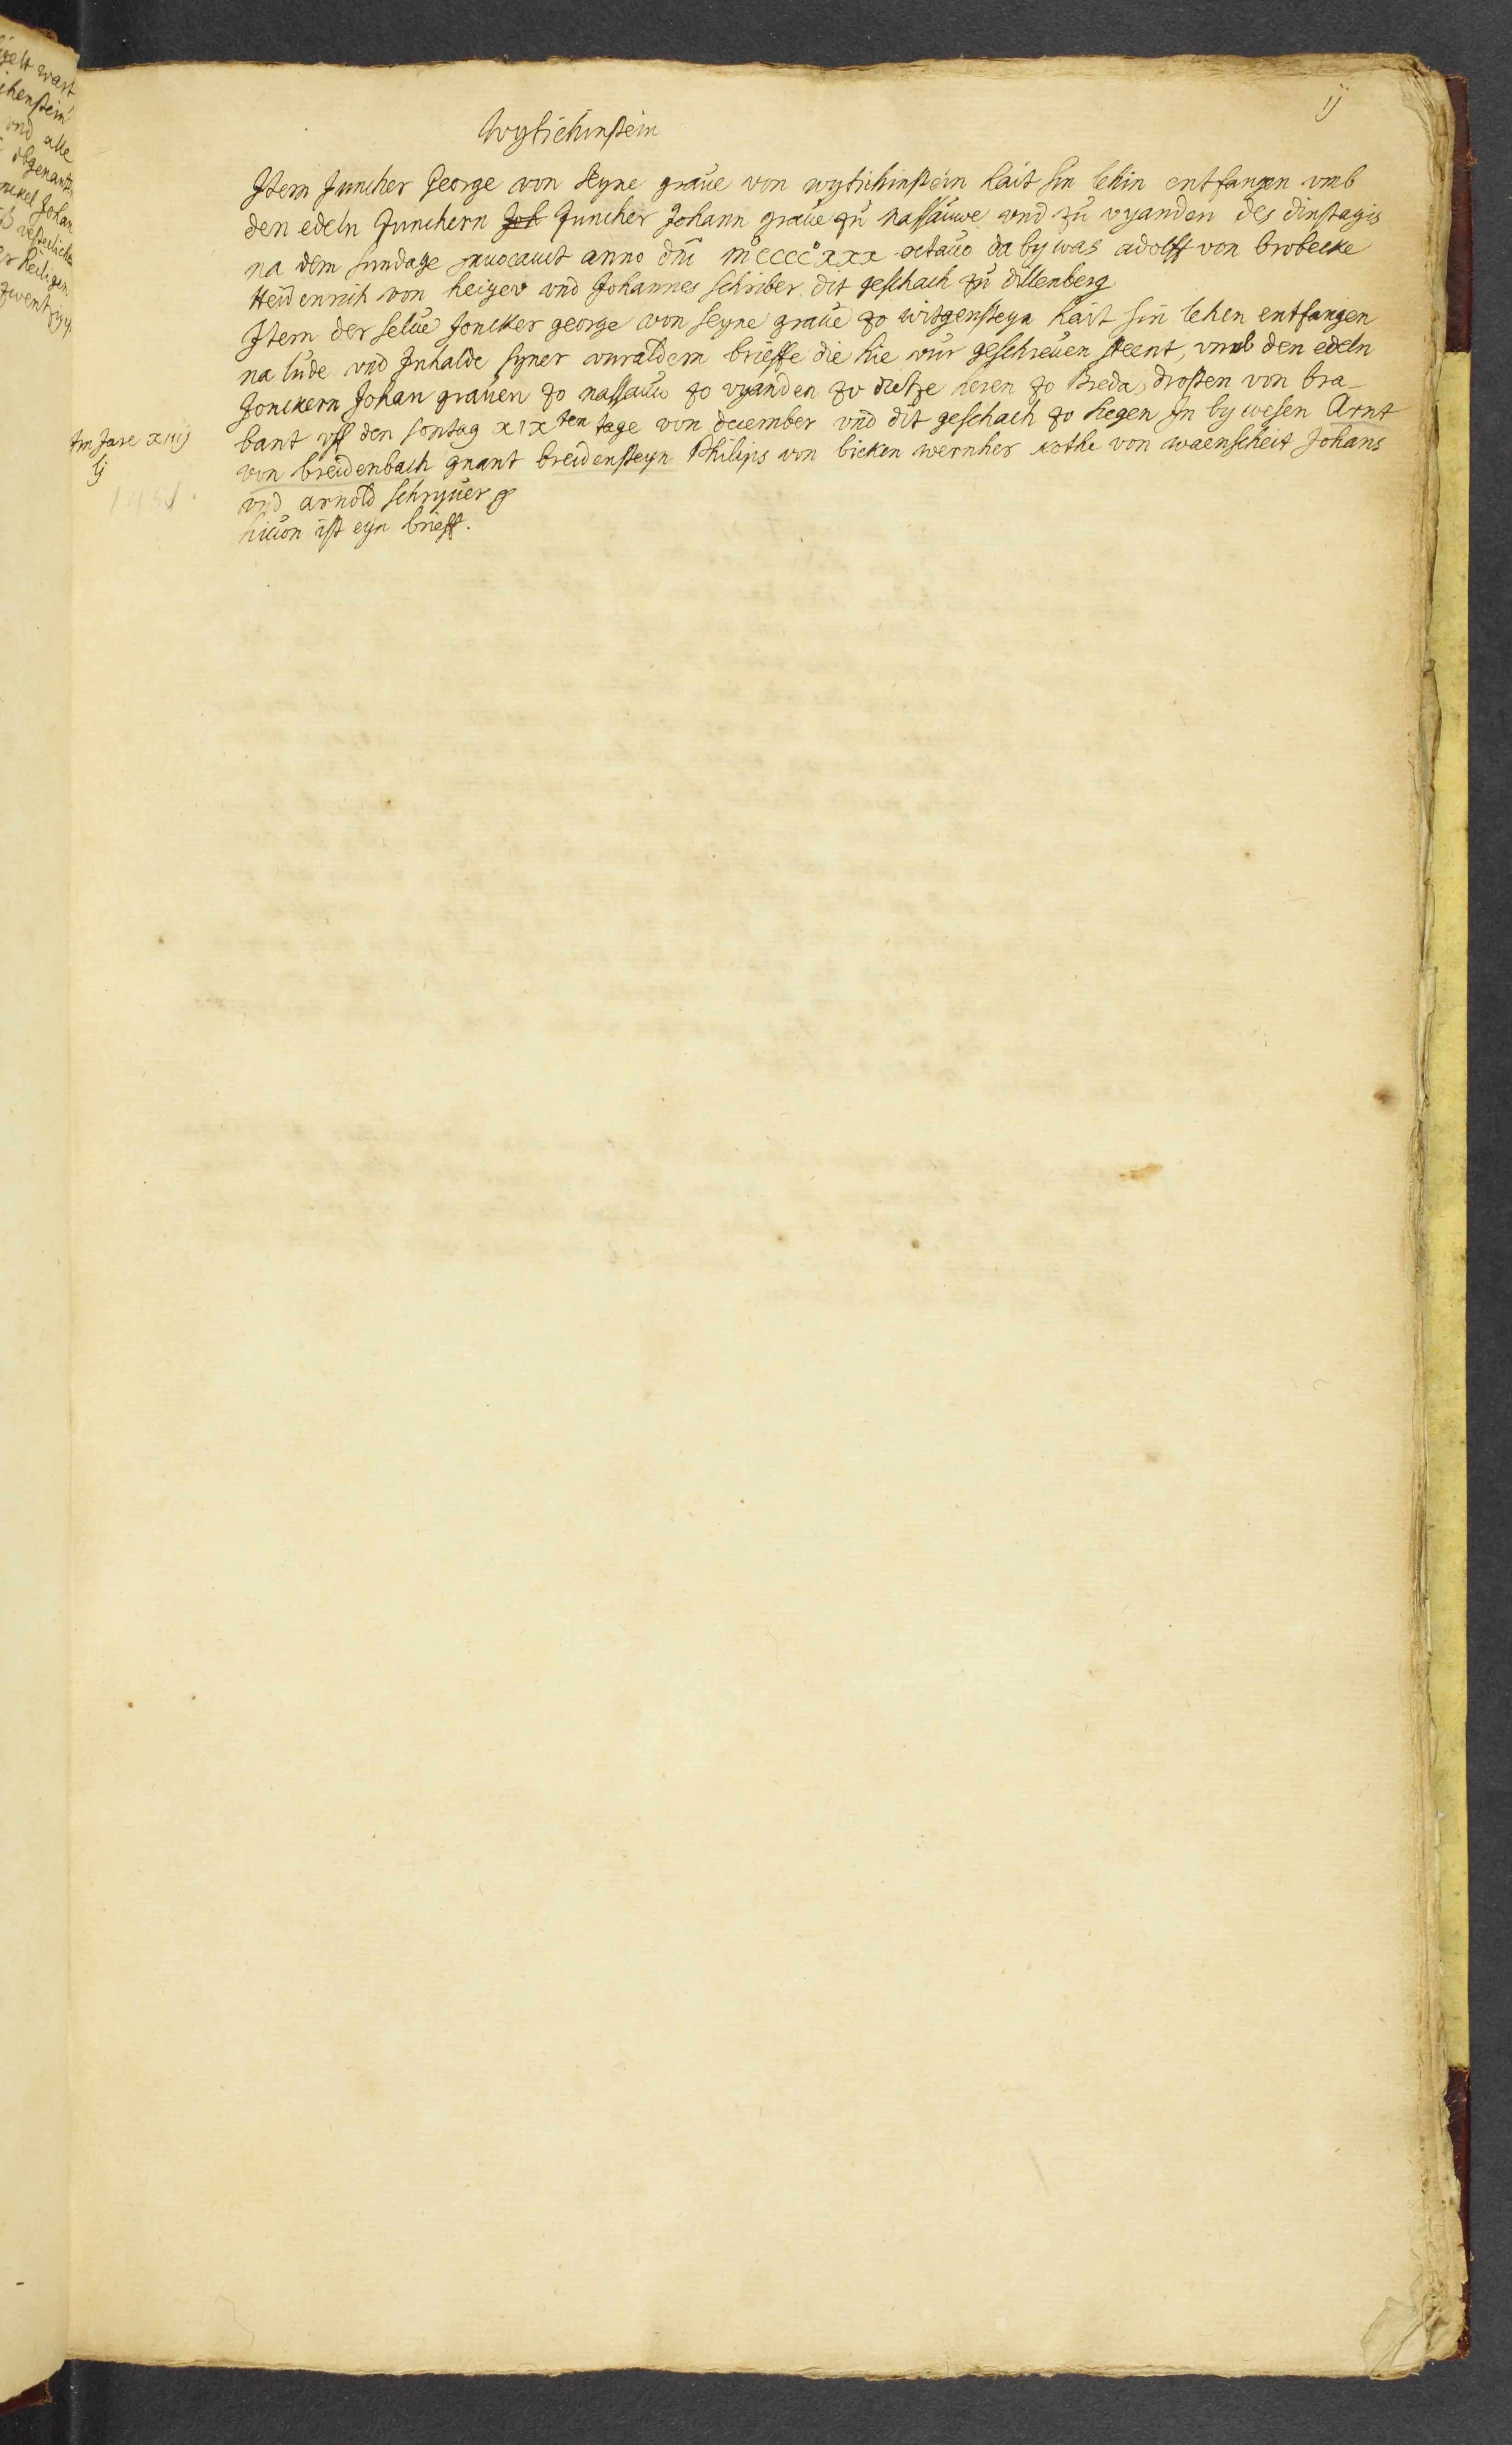 ij
Wytichinstein
Item Juncher George von Seyne graue von wytichinstein hait sin lehin entfangen vmb
den edeln Junchern Joh Juncher Johann graue zu Nassauwe vnd zu vyanden des dinstagis
na dem sundage Inuocauit anno dni mºccccºxxx octauo da by was adolff von brobecke
Heidenrich von heiger vnd Johannes schriber dit geschach zu dillenberg
Item der selue Joncker george von seyne graue zo witgensteyn hait sin lehen entfangen
na lude vnd Inhalde syner vnraldern brieffe die hie vur geschreuen steent, vmb den edeln
Jonckern Johan grauen zo nassauw zo vyanden zo dietze heren zo Breda, drosten von bra-
bant vff den sontag xix ten tage von december vnd dit geschach zo Siegen In bywesen Arnt
von breidenbach gnant breidensteyn Philips von bicken wernher kothe von waenscheit Johans
vnd arnold schryuer
hieuon ist eyn brieff.
Im Jare xiiij
lj
1451.
gelt wart
chenstein
vnd alle
obgenanten
nckel Johan
heiligen